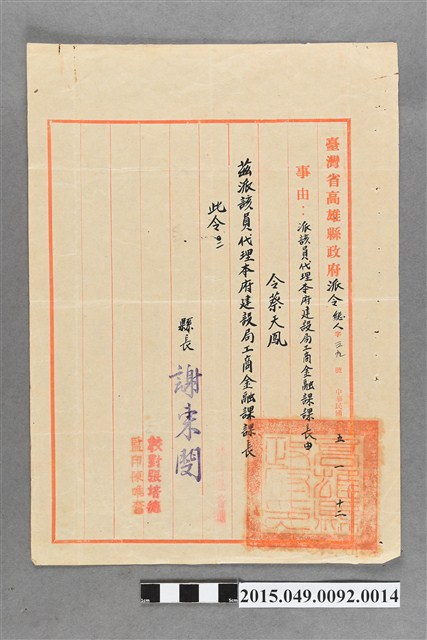 臺灣省高雄縣政府派令 總人字三九號 中華民國 五 一 十二
事由：派該員代理本府建設局工商金融課課長由
令蔡天鳳
茲派該員代理本府建設局工商金融課課長
此令
縣長
謝東閔
校對張培德
5cm
2015.049.0092.0014